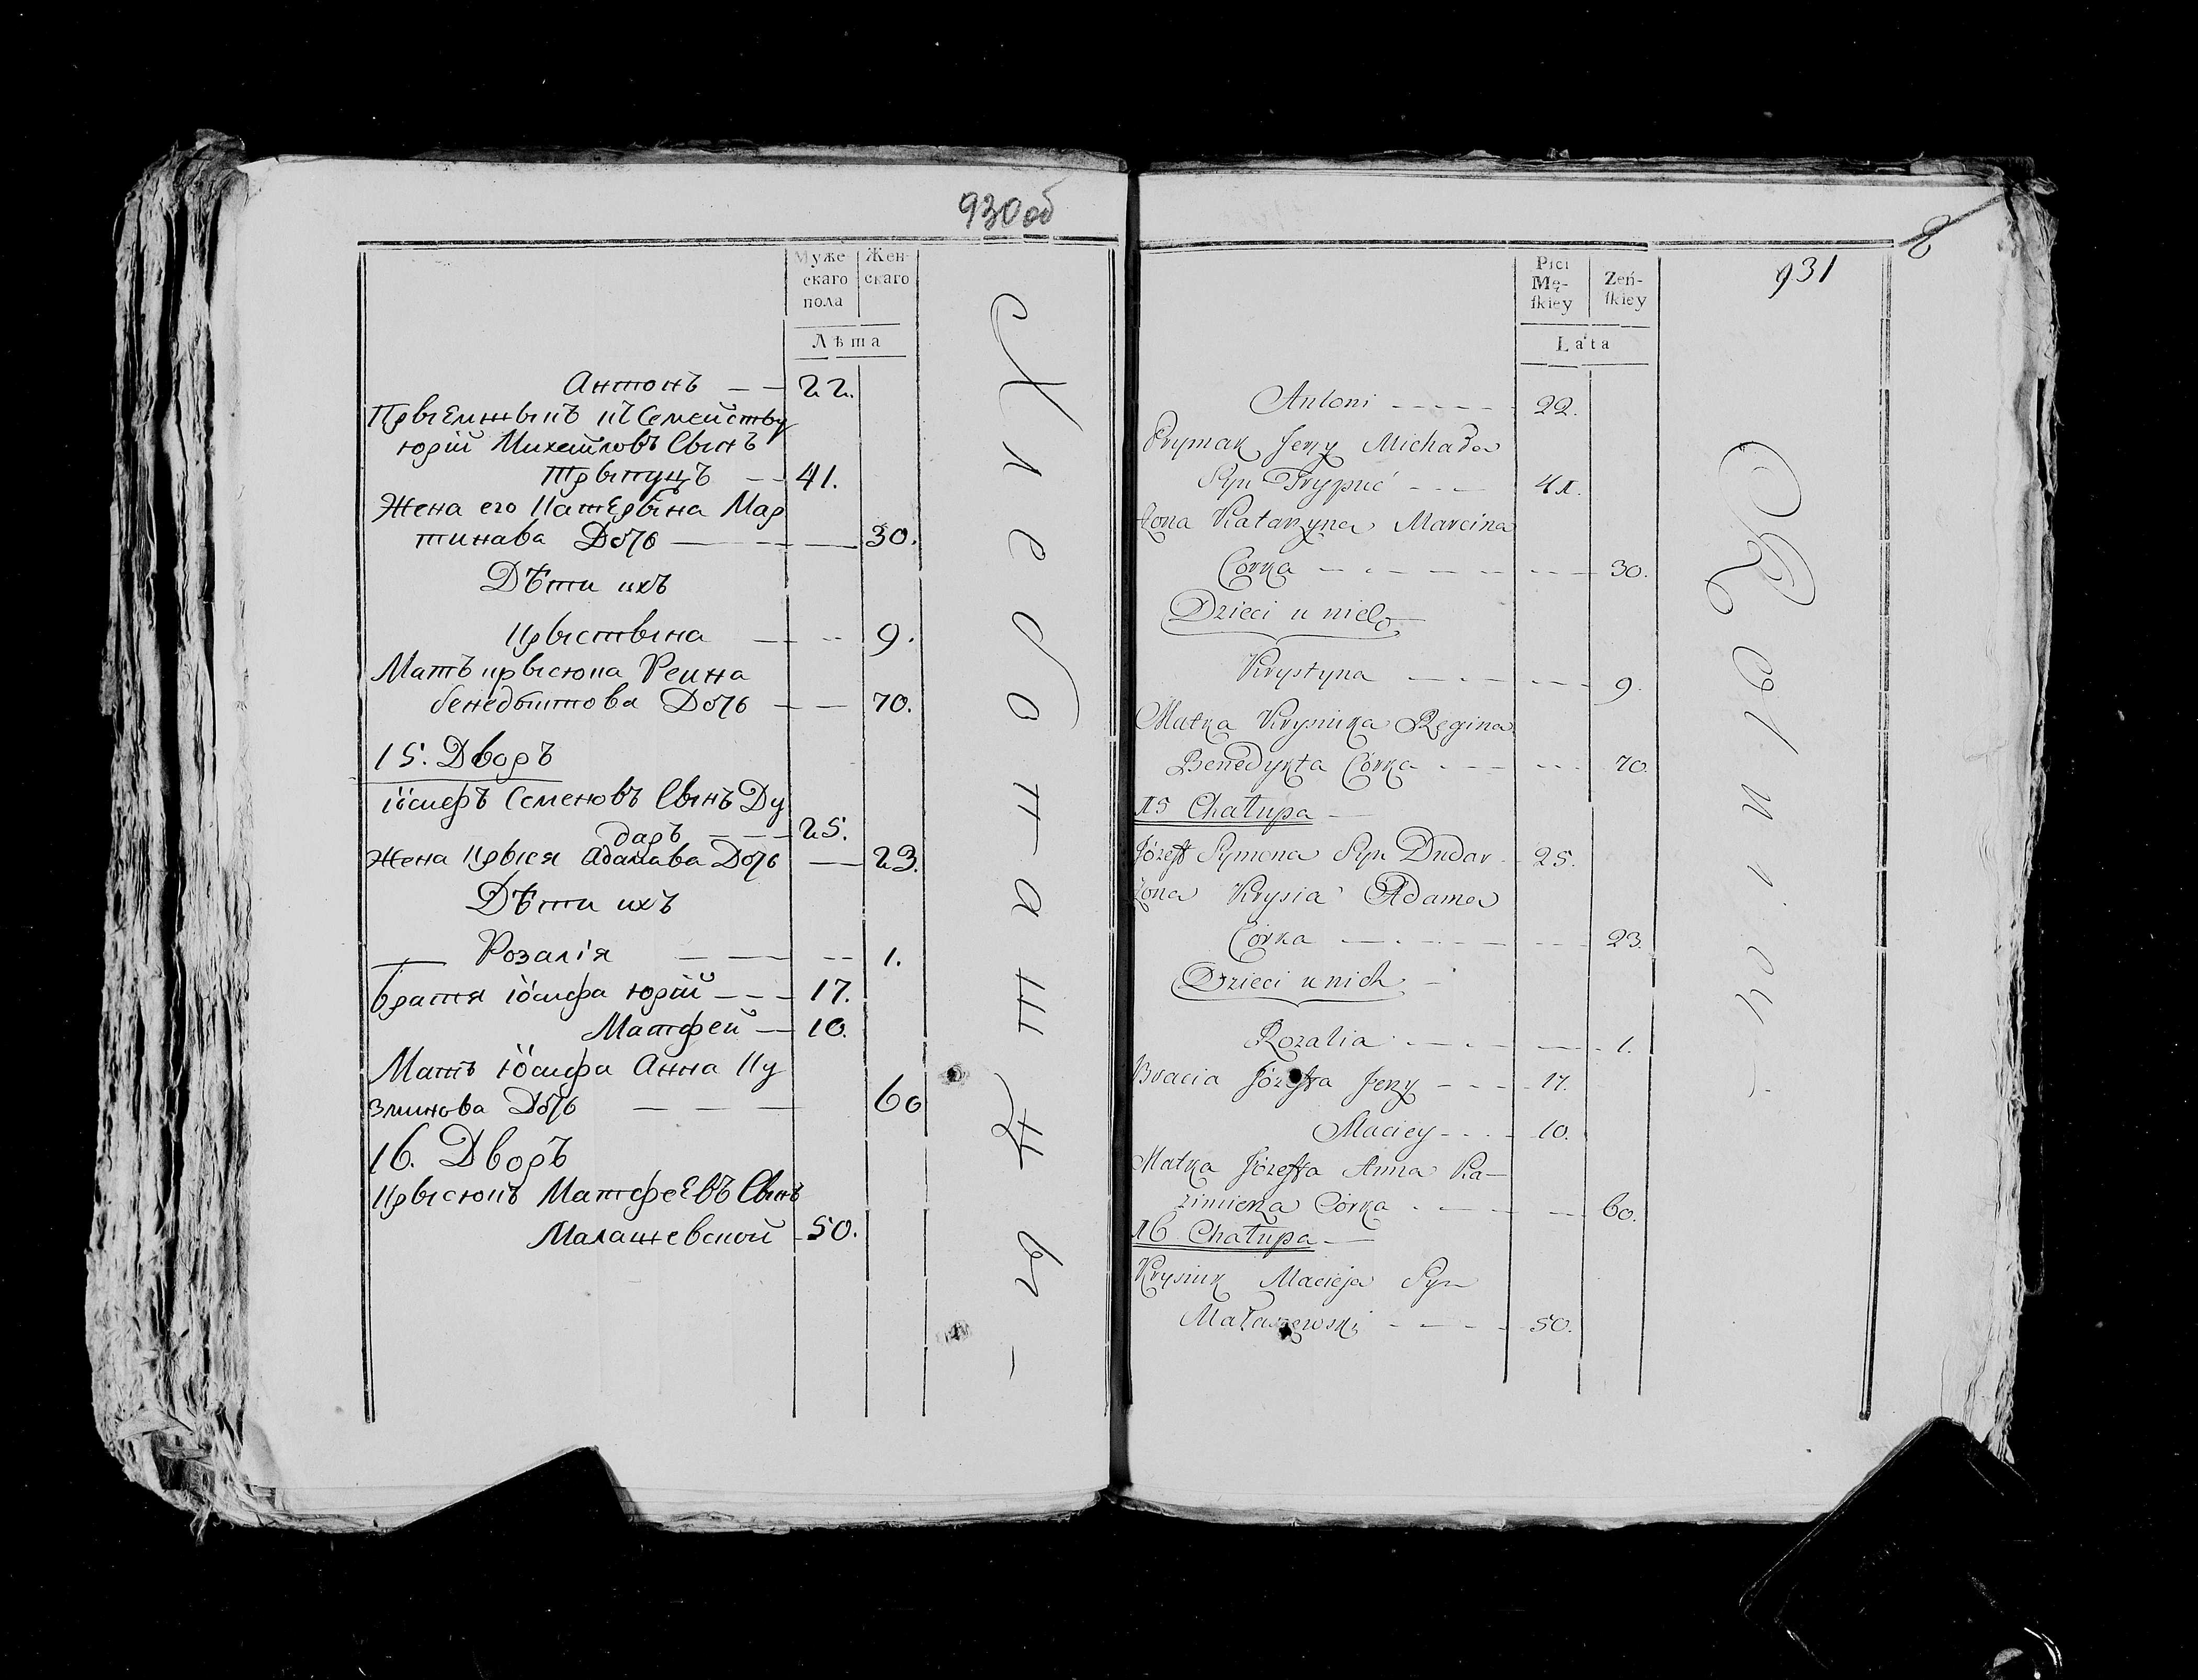 930 об
Муже-
скаго
пола
Жен-
скаго
Лѣта
Антонъ — — 22.
Прыемныкъ къ Семейству
юрій Михайловъ Сынъ
Трыпуцъ — — 41.
Жена его Катерына Мар
тинава Дочь — — — 30.
Дѣти ихъ
Крыстына — -- 9.
Мать крысюка Реина
бенедыктова Дочь — — 70.
15. Дворъ
іосифъ Семеновъ Сынъ Ду
даръ — — 25.
Жена Крыся Адамава Дочь — 23.
Дѣти ихъ
Розалія — — -- 1.
братя іосифа юрій — — — 17.
Матфей — 10.
Мать іосифа Анна Ку
змина Дочь — — — 60
16. Дворъ
Крысюкъ Матфеевъ Сынъ
Малашевской 50.
Хлебопашцы -
8
931
Płci
Mę-
ſkiey
Zeń-
ſkiey
Lata
Antoni - - - - - 22.
Prymak Jerzy Michała
Syn Trypuć - - - 41.
Żona Katarzyna Marcina
Córka - - - - - 30.
Dzieci u nich
Krystyna - - - - - 9.
Matka Krysiuka Regina
Benedykta Córka - - - - - 70.
15 Chałupa —
Józeff Symona Syn Dudar - 25.
Żona Krysia Adama
Córka - - - - - 23.
Dzieci u nich -
Rozalia - - - - — 1.
Bracia Józeffa Jerzy - - - 17.
Maciey - - - - 10.
Matka Józeffa Anna Ka—
zimierza Córka - - - - 60.
16 Chałupa —
Krysiuk Macieja Syn
Małaszewski - - - - 50.